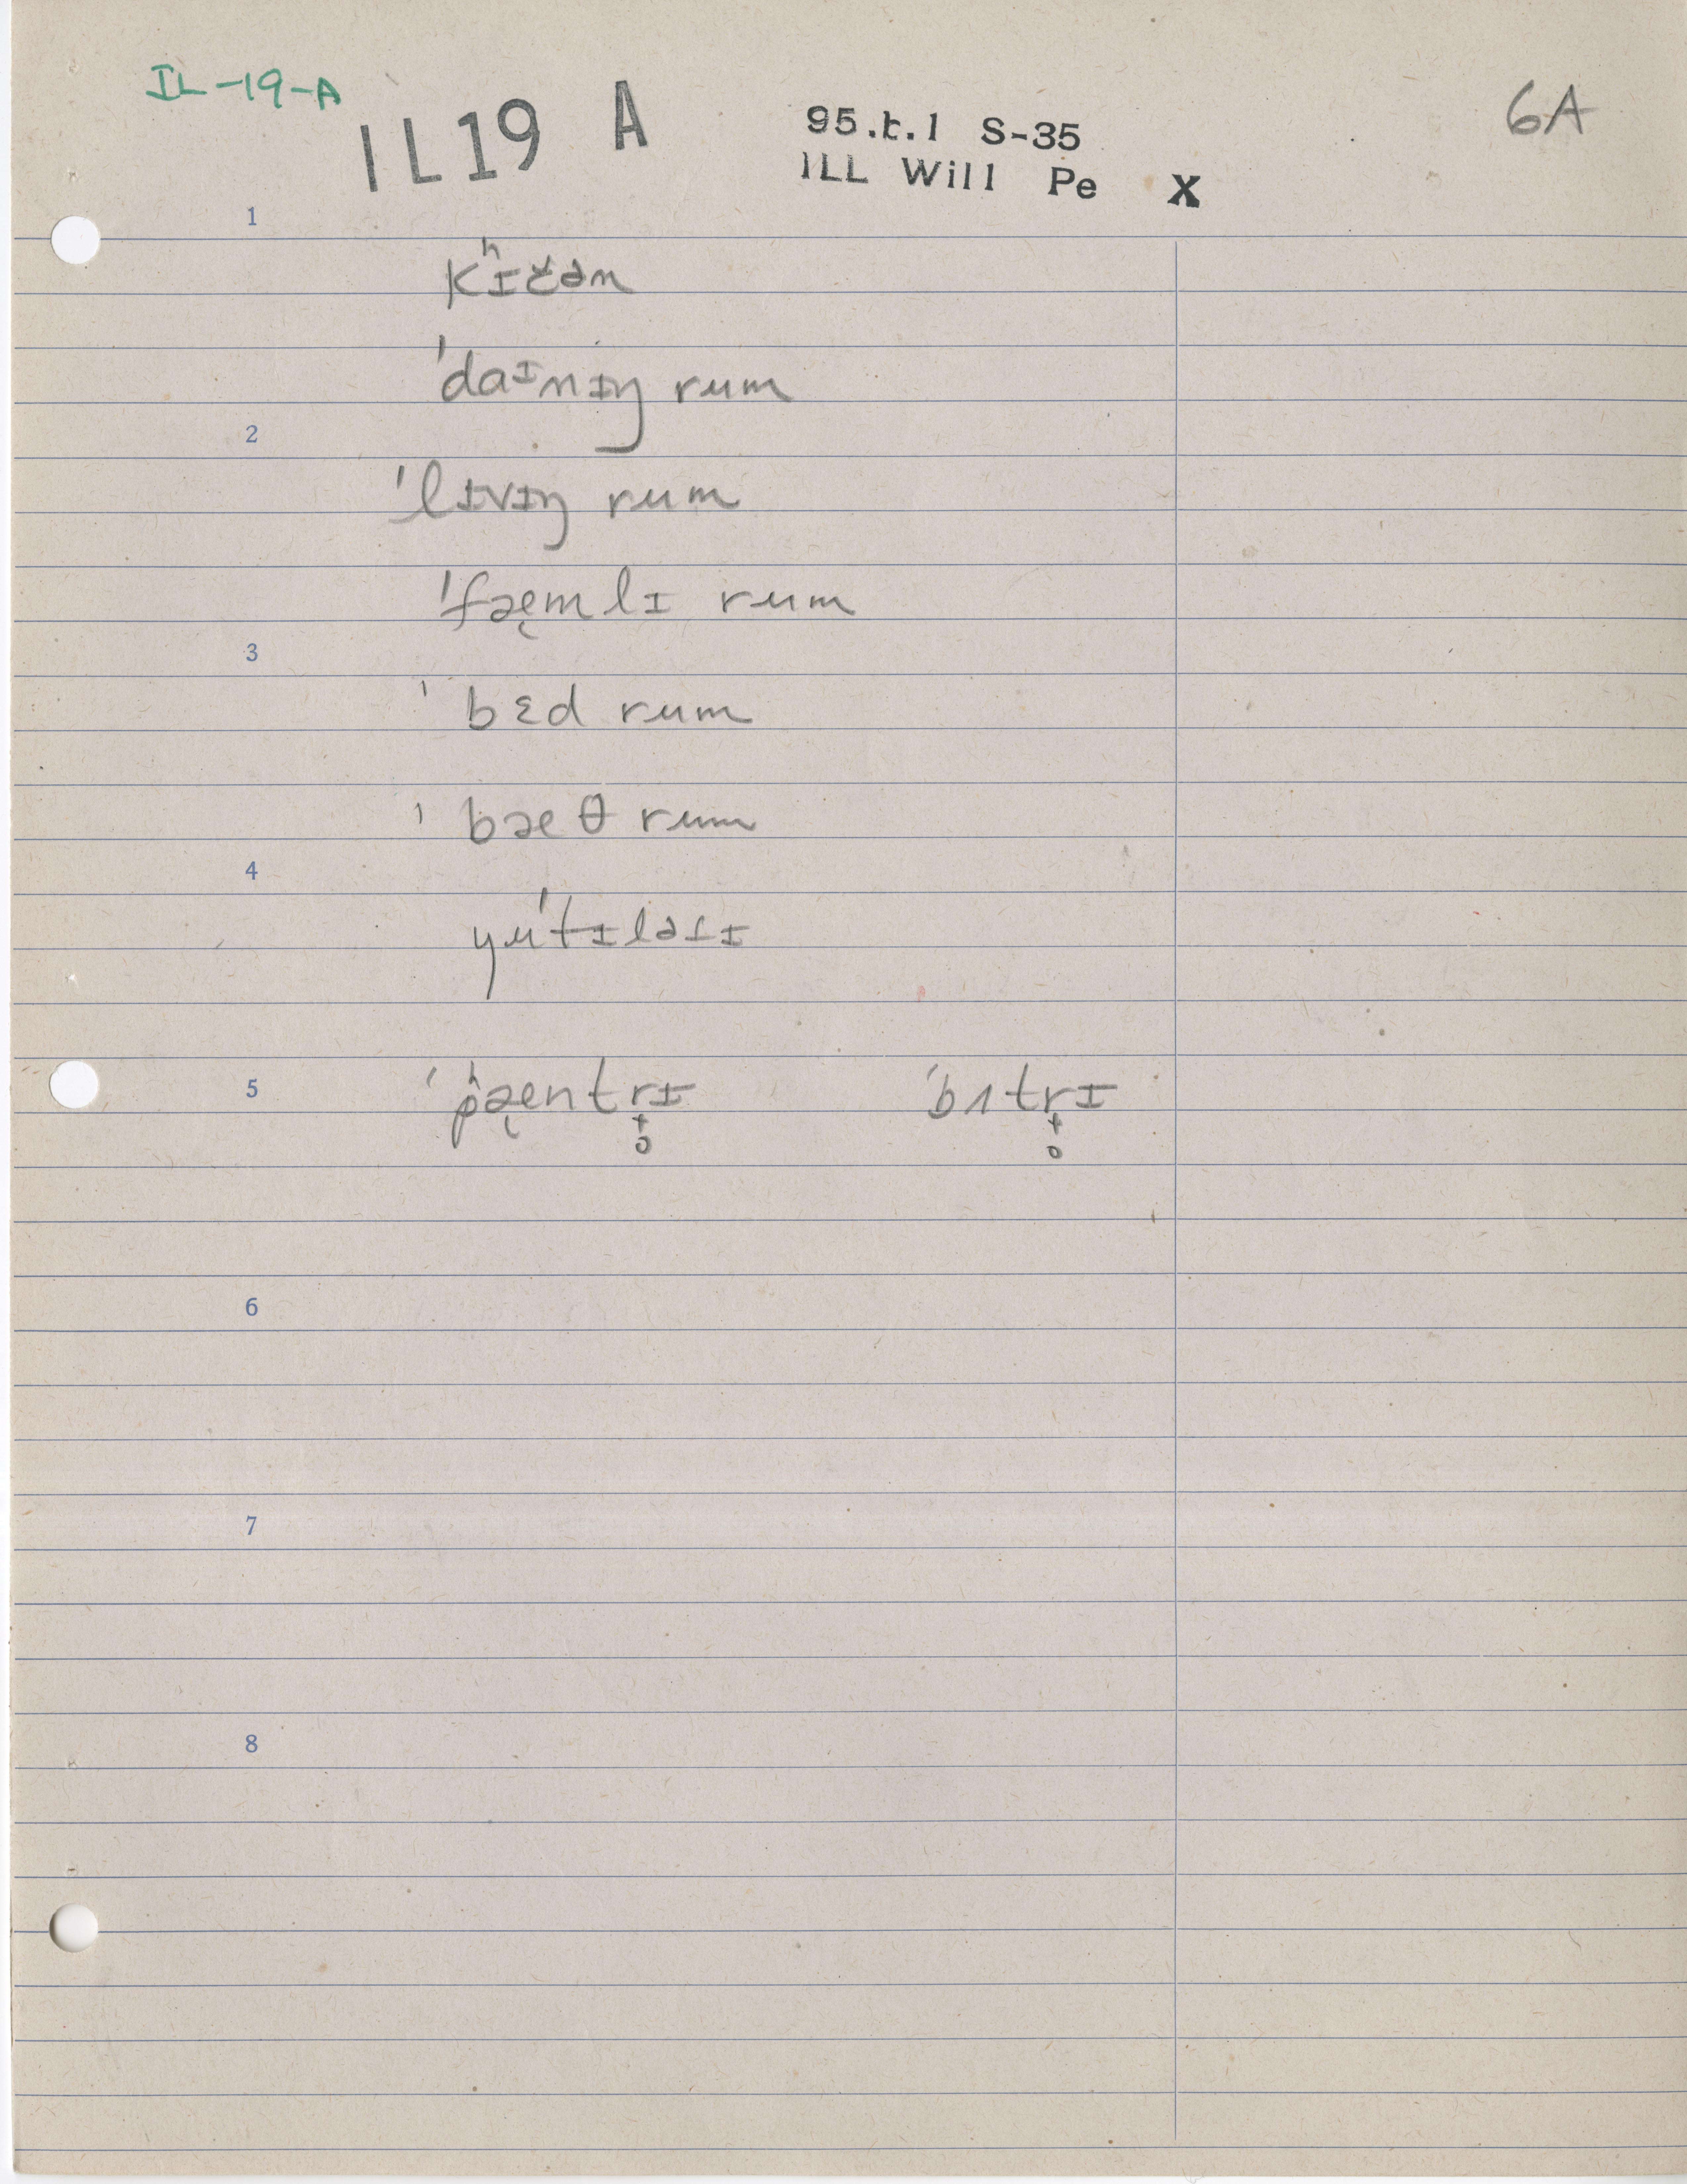 IL-19-A
IL19 A
95.t.1 S-35
6A
ILL Will Pe X
1
kʰɪčən
ˈdaɪnɪŋ rum
2
ˈlɪvɪŋ rum
ˈfæ̨mlɪ rum
3
ˈbɛd rum
ˈbæθ rum
4
yuˈtɪləɾɪ
5 ˈpʰæ̨ntr̟̊ɪ ˈbʌtr̟̊ɪ
6
7
8